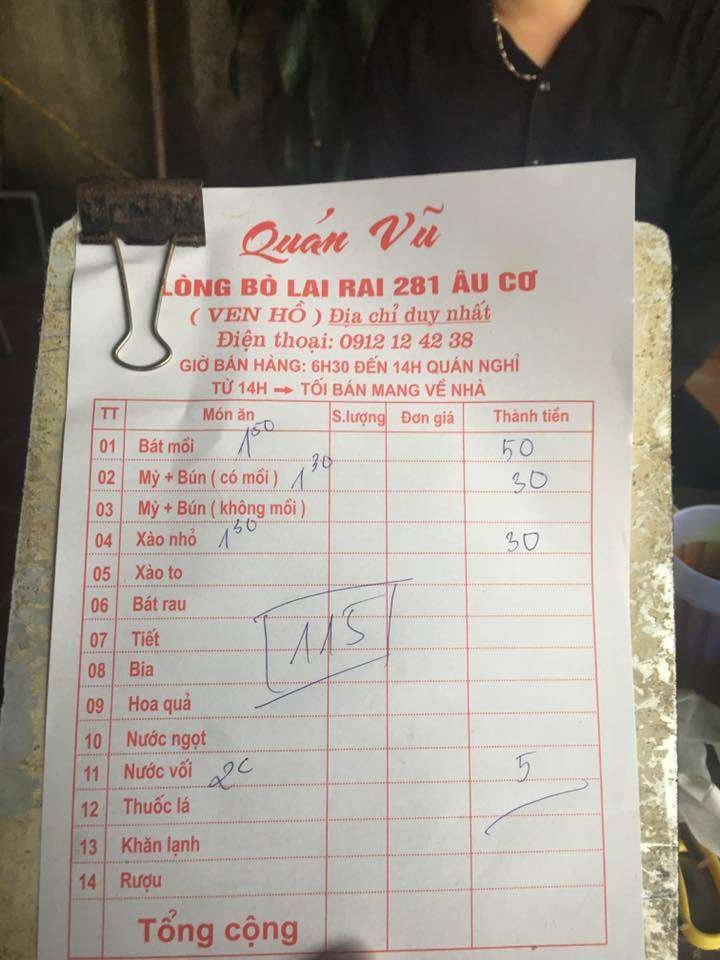 Quán Vũ
LÒNG BÒ LAI RAI 281 ÂU CƠ
( VEN HỒ ) Địa chỉ duy nhất
Điện thoại: 0912 12 42 38
GIỜ BÁN HÀNG: 6H30 ĐẾN 14H QUÁN NGHỈ
TỪ 14H → TỐI BÁN MANG VỀ NHÀ
TT Món ăn S.lượng Đơn giá Thành tiền
01 Bát mồi 1 50 50
02 Mỳ + Bún ( có mồi ) 1 30 30
03 Mỳ + Bún ( không mồi )
04 Xào nhỏ 1 30 30
05 Xào to
06 Bát rau
115
07 Tiết
08 Bia
09 Hoa quả
10 Nước ngọt
11 Nước vối 2c 5
12 Thuốc lá
13 Khăn lạnh
14 Rượu
Tổng cộng